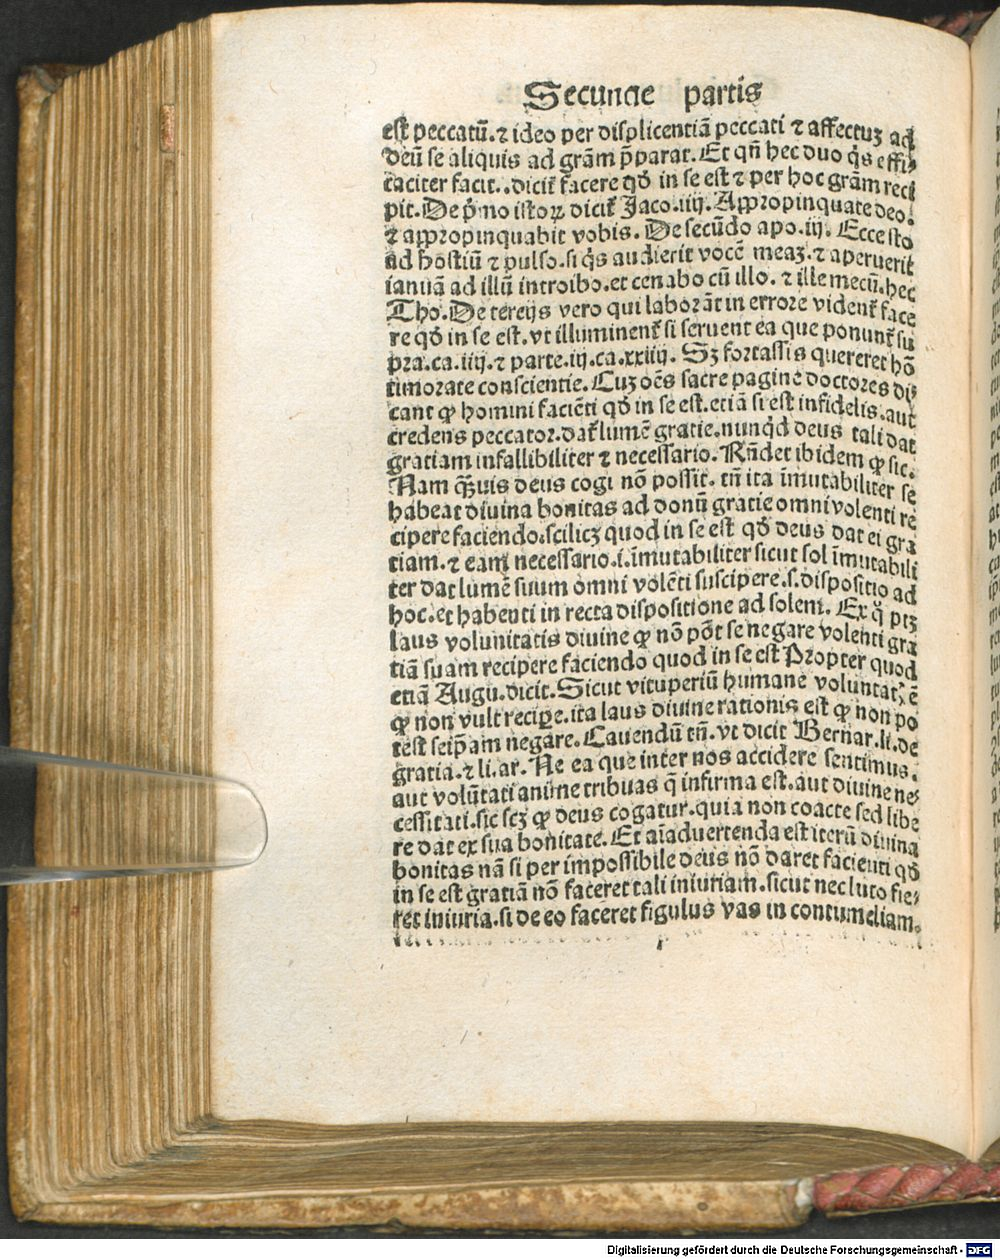 Secunde partis
est peccatū. ⁊ ideo per displicentiā peccati ⁊ affectuꝫ ad
deū se aliquis ad grām p̄parat. Et qn̄ hec duo q̄s effi⸗
caciter facit. . dicit᷑ facere qd̛ in se est ⁊ per hoc grām reci
pit. De p̄mo istoꝝ dicit᷑ Jaco. iiij. Appropinquate deo.
⁊ appropinquabit vobis. De secūdo apo. iij. Ecce sto
ad hostiū ⁊ pulso. si q̄s audierit vocē meaꝫ. ⁊ aperuerit
ianuā ad illū introibo. et cenabo cū illo. ⁊ ille mecū. hec
Tho. De tercijs vero qui laborāt in errore vident᷑ face
re qd̛ in se est. vt illuminent᷑ si seruent ea que ponunt᷑ su
pra. ca. iiij. ⁊ parte. iij. ca. xxiiij. Sꝫ fortassis quereret hō
timorate conscientie. Cuꝫ oēs sacre pagine doctores di⸗
cant ꝙ homini faciēti qd̛ in se est. etiā si est infidelis. aut
credens peccator. dat᷑ lumē gratie. nunqd̛ deus tali dat
gratiam infallibiliter ⁊ necessario. Rn̄det ibidem ꝙ sic.
Nam ꝙ̄uis deus cogi nō possit. tn̄ ita īmutabiliter se
habeat diuina bonitas ad donū gratie omni volenti re
cipere faciendo. scilicꝫ quod in se est qd̛ deus dat ei gra
tiam. ⁊ eam necessario. i. īmutabiliter sicut sol īmutabili
ter dat lumē suum omni volēti suscipere. s. dispositio ad
hoc. et habenti in recta dispositione ad solem. Ex q̄ ptꝫ
laus voluntatis diuine ꝙ nō pōt se negare volenti gra
tiā suam recipere faciendo quod in se est Propter quod
etiā Augu. dicit. Sicut vituperiū humane voluntatꝭ ē
ꝙ non vult recipe. ita laus diuine rationis est ꝙ non po
test seip̄am negare. Cauendū tn̄. vt dicit Bernar. li. de
gratia. ⁊ li. ar. Ne ea que inter nos accidere sentimus.
aut volūtati anime tribuas q̄ infirma est. aut diuine ne⸗
cessitati. sic scꝫ ꝙ deus cogatur. quia non coacte sed libe
re dat ex sua bonitate. Et aīaduertenda est iterū diuina
bonitas nā si per impossibile deus nō daret facienti qd̛
in se est gratiā nō faceret tali iniuriam. sicut nec luto fie⸗
ret iniuria. si de eo faceret figulus vas in contumeliam.
Digitalisierung gefördert durch die Deutsche Forschungsgemeinschaft - DFG